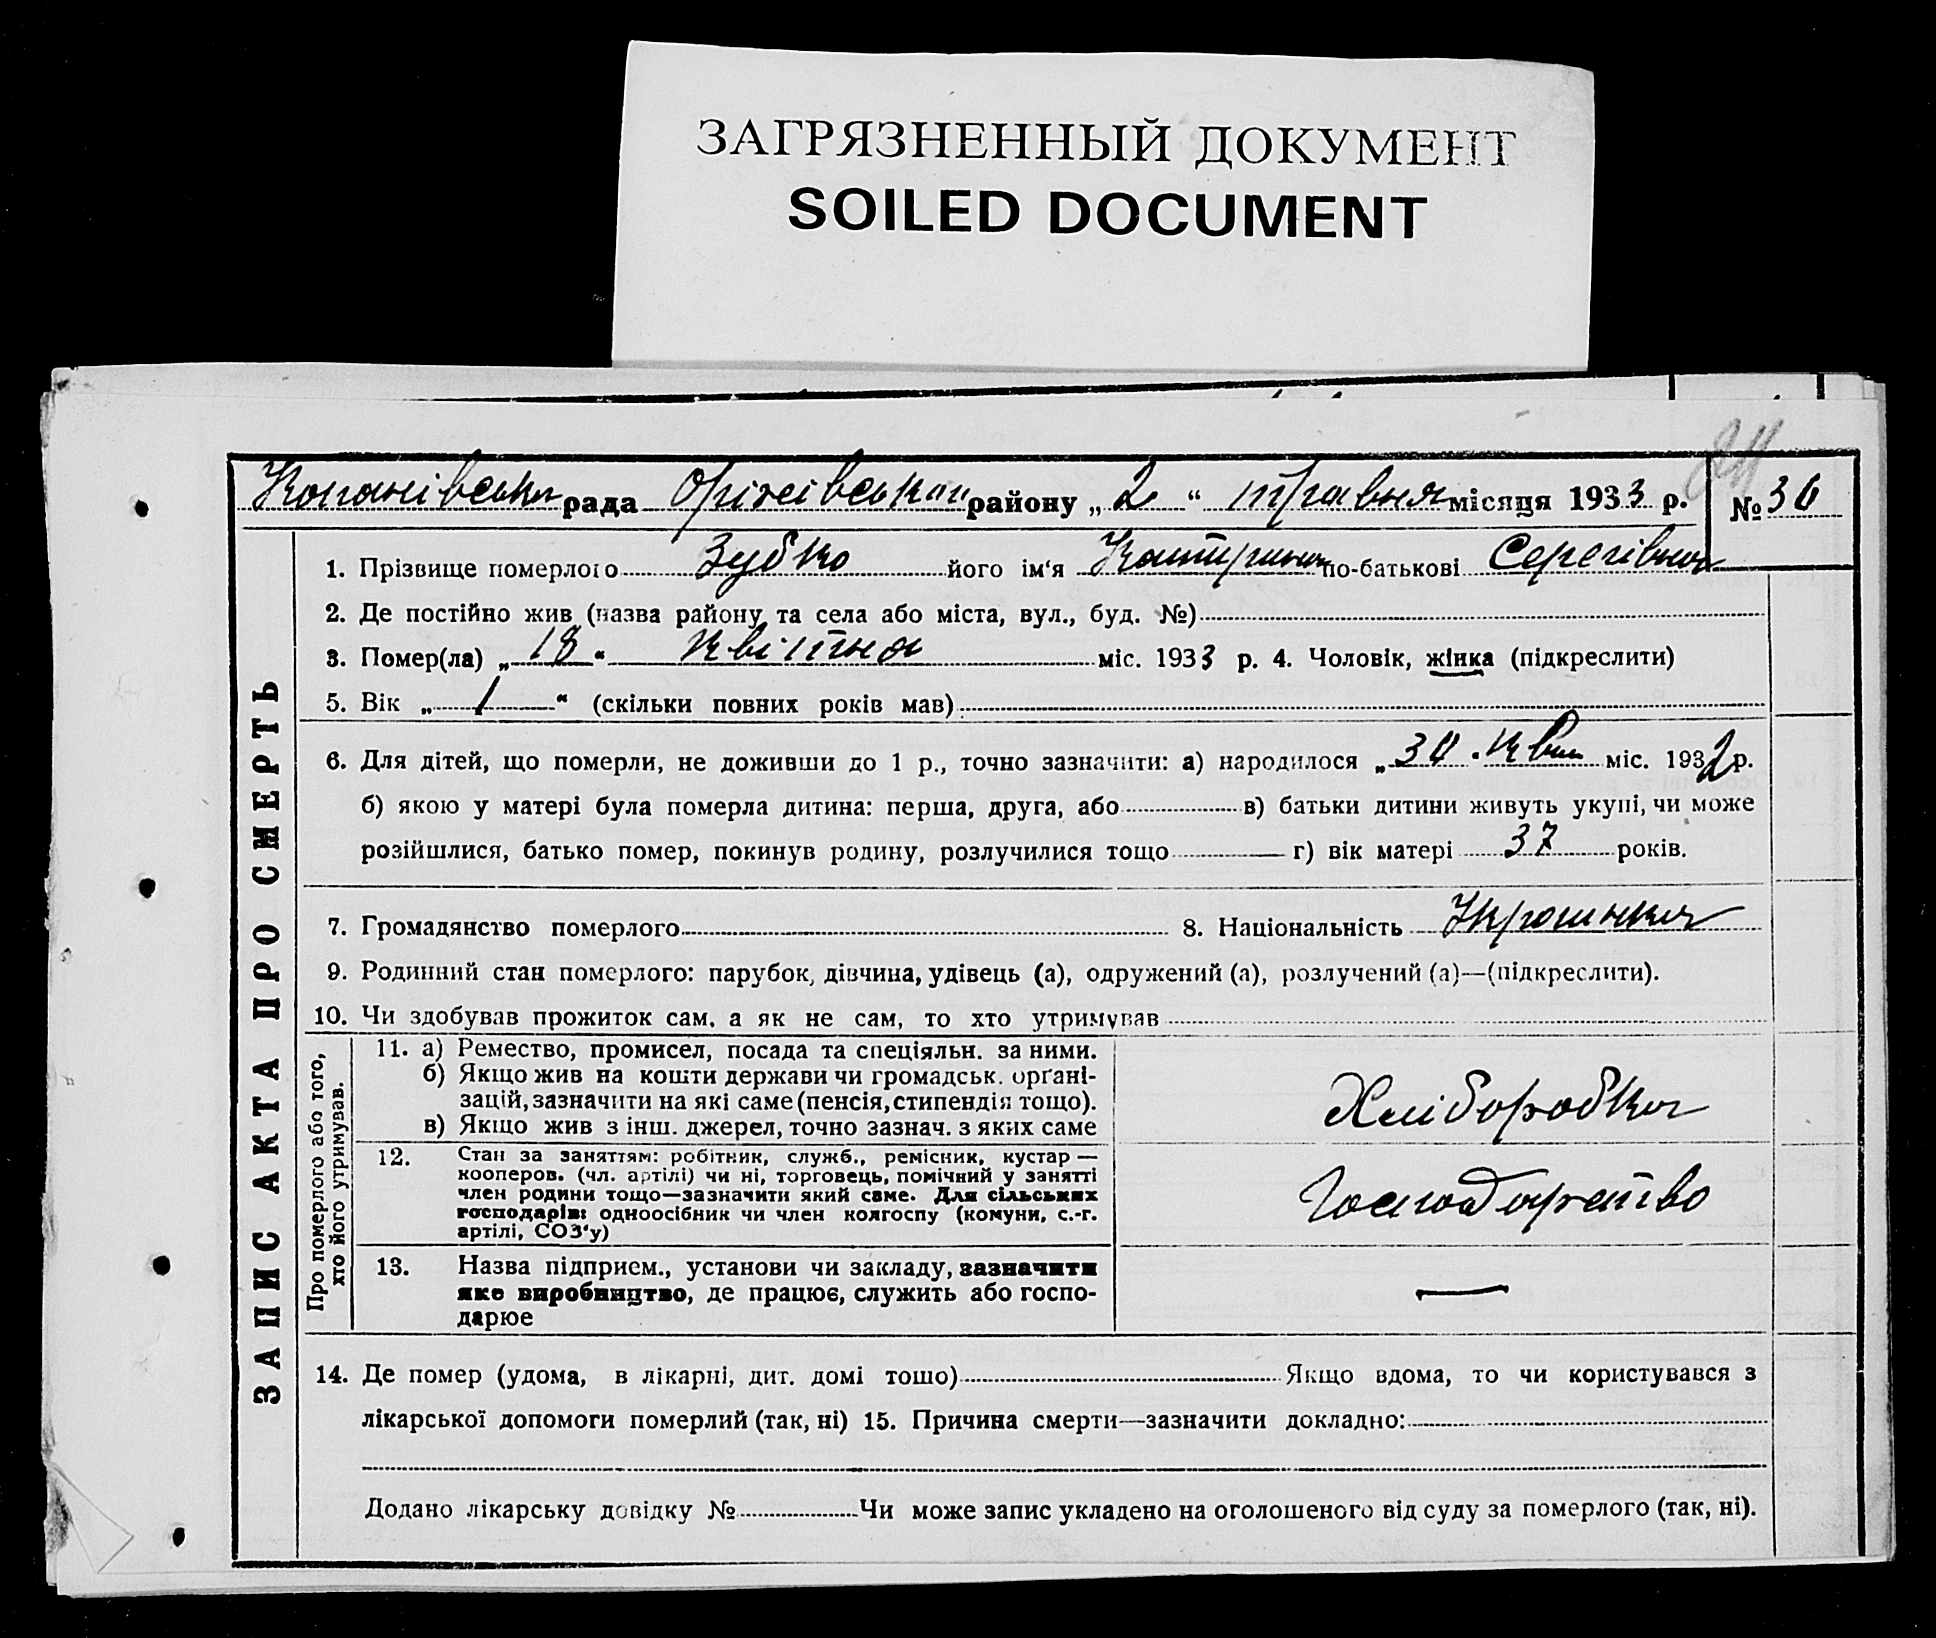 ЗАГРЯЗНЕННЫЙ ДОКУМЕНТ
SOILED DOCUMENT
Копанівська рада Оріхівський району „ 2 “ травня місяця 1933 р. № 36
ЗАПИС АКТА ПРО СМЕРТЬ
1. Прізвище померлого Зубко його ім'я Катерина по-батькові Сергіївна
2. Де постійно жив (назва району та села або міста, вул., буд. №)
3. Помер(ла) „ 18 “ квітня міс. 1933 р. 4. Чоловік, жінка (підкреслити)
5. Вік „ 1 “ (скільки повних років мав)
6. Для дітей, що померли, не доживши до 1 р., точно зазначити: а) народилося „ 30 . квіт міс. 1932 р.
б) якою у матері була померла дитина: перша, друга, або в) батьки дитини живуть укупі, чи може
розійшлися, батько помер, покинув родину, розлучилися тощо г) вік матері 37 років.
7. Громадянство померлого 8. Національність Украинка
9. Родинний стан померлого: парубок, дівчина, удівець (а), одружений (а), розлучений (а)—(підкреслити).
10. Чи здобував прожиток сам, а як не сам, то хто утримував
Про померлого або того,
хто його утримував.
11. а) Ремество, промисел, посада та спеціяльн. за ними.
б) Якщо жив на кошти держави чи громадськ. орґані-
зацій, зазначити на які саме (пенсія, стипендія тощо).
в) Якщо жив з інш. джерел, точно зазнач. з яких саме
Хліборобка
12. Стан за заняттям: робітник, служб., ремісник, кустар —
кооперов. (чл. артілі) чи ні, торговець, помічний у занятті
член родини тощо—зазначити який саме. Для сільських
господарів: одноосібник чи член колгоспу (комуни, с.-г.
артілі, СОЗ'у)
Господарство
13. Назва підприєм., установи чи закладу, зазначити
яке виробництво, де працює, служить або госпо-
дарює
—
14. Де помер (удома, в лікарні, дит. домі тощо) Якщо вдома, то чи користувався з
лікарської допомоги померлий (так, ні) 15. Причина смерти—зазначити докладно:
Додано лікарську довідку № Чи може запис укладено на оголошеного від суду за померлого (так, ні).